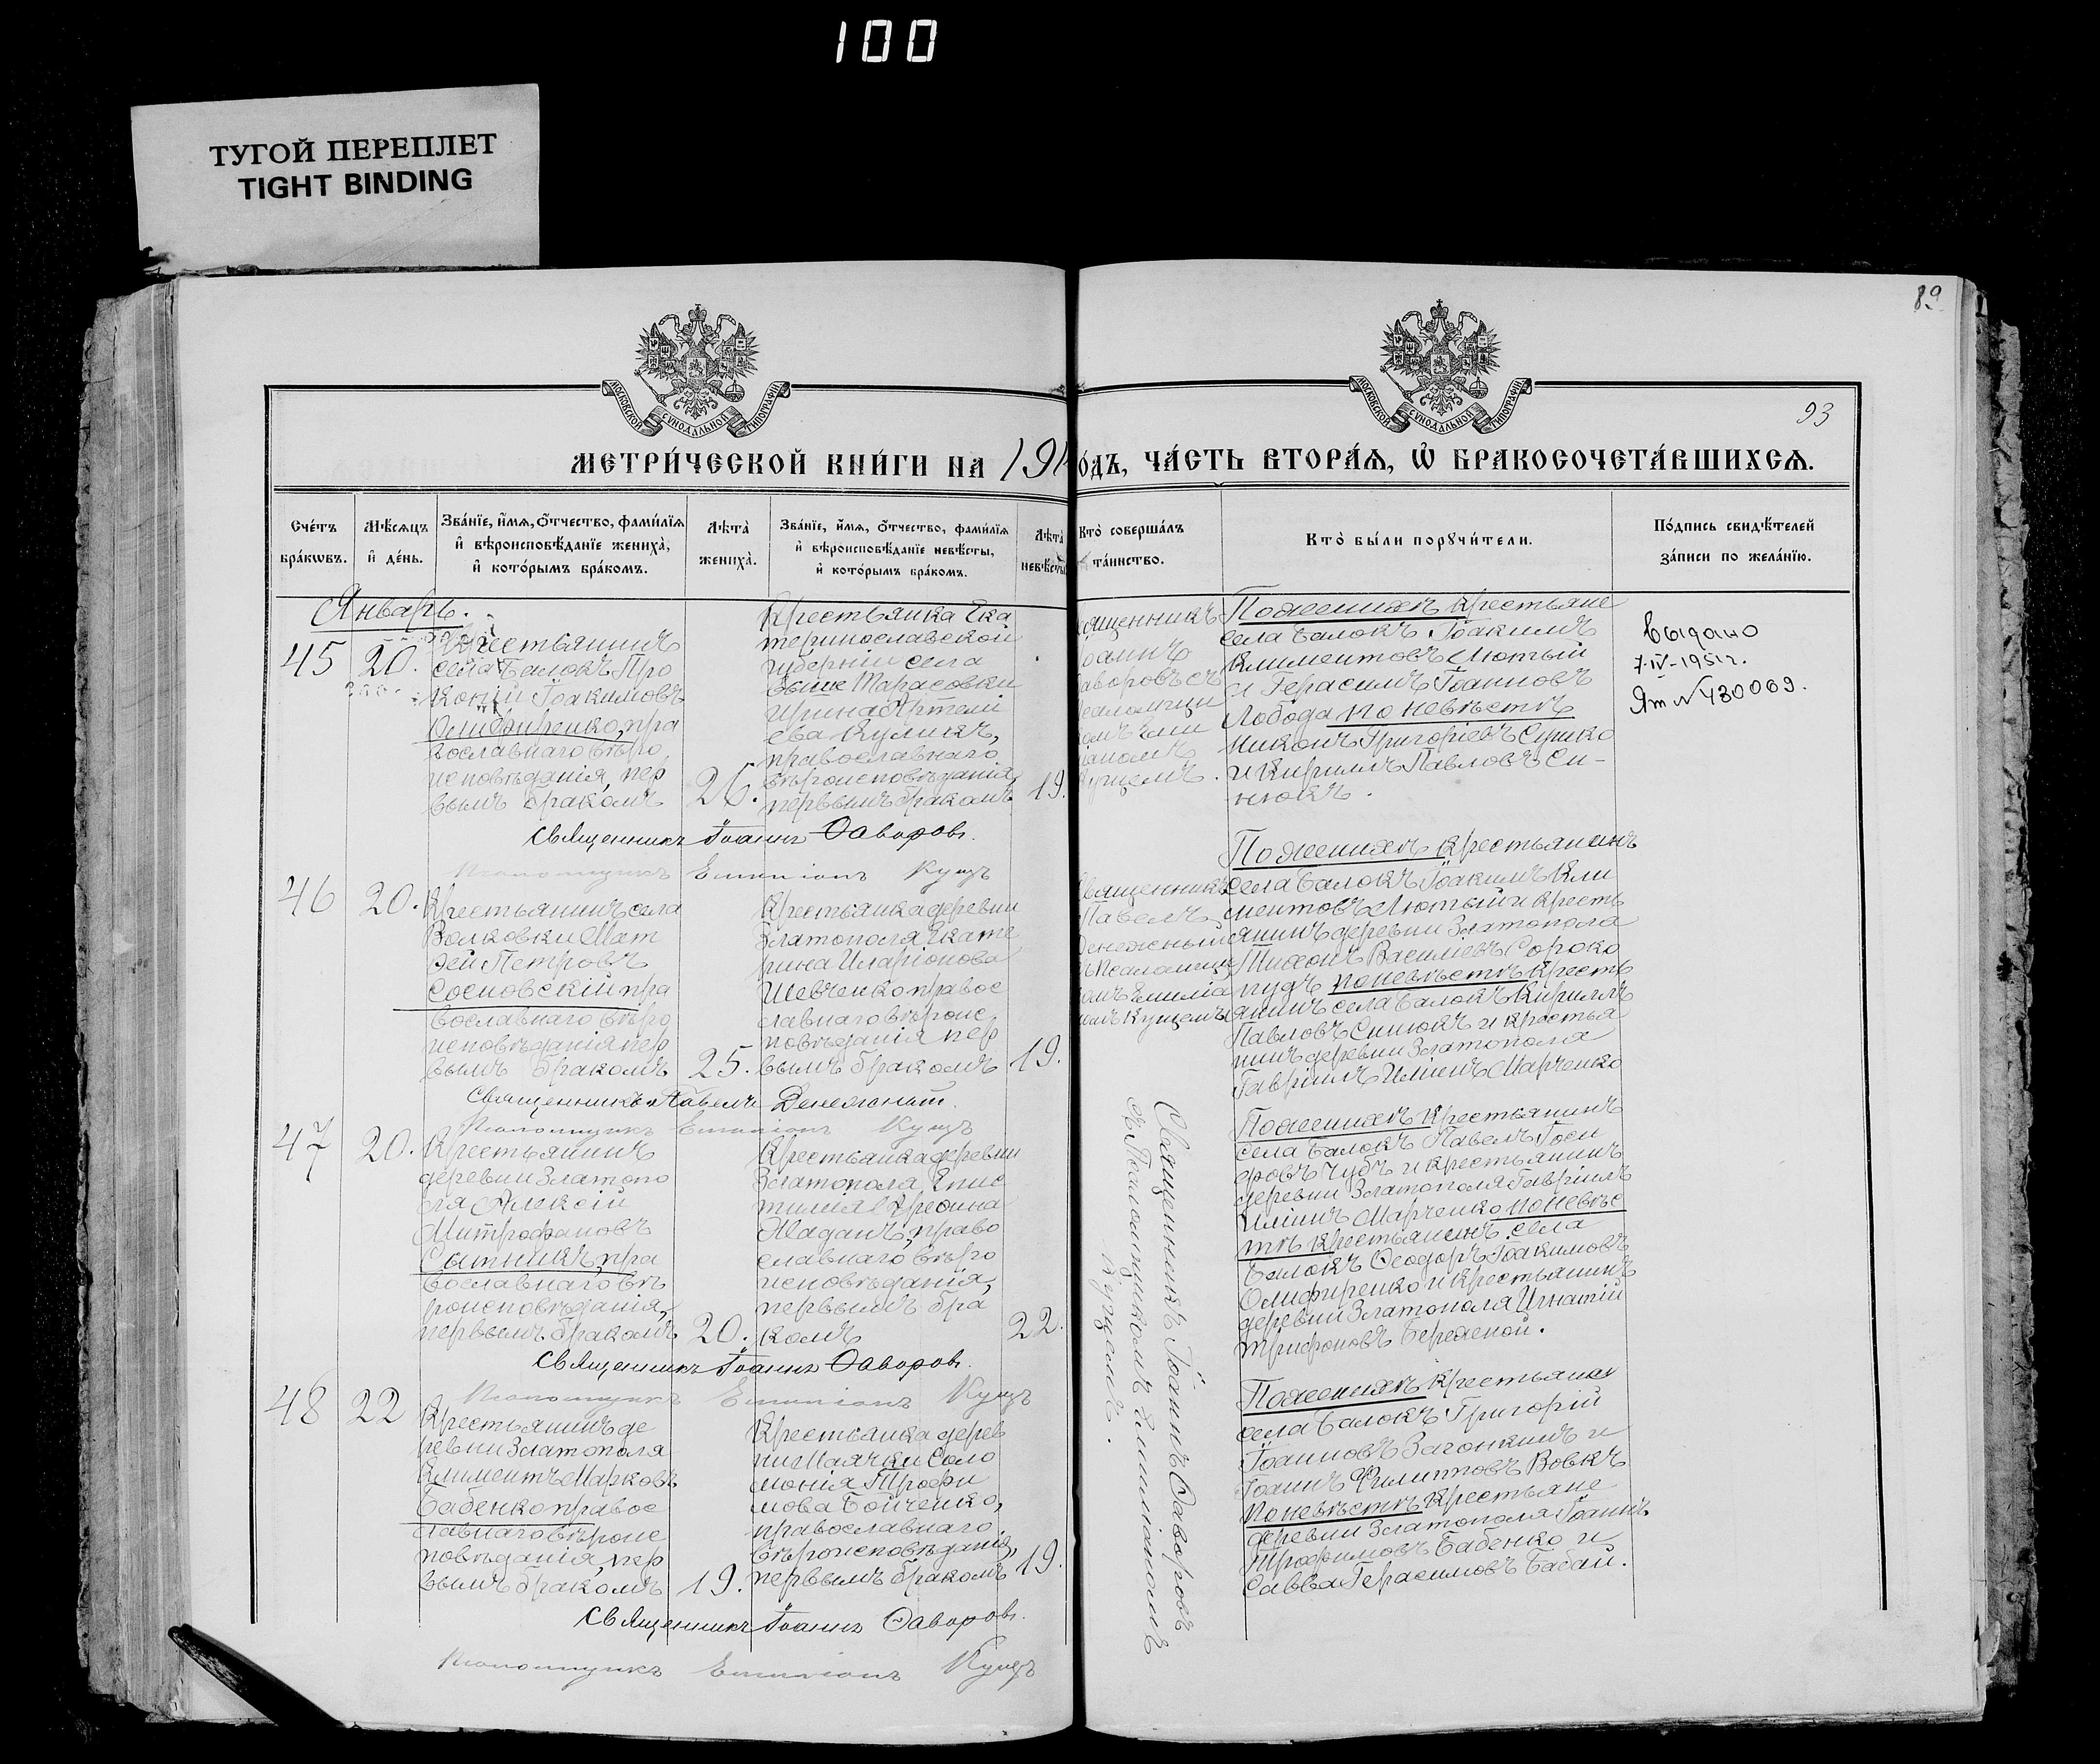 100
ТУГОЙ ПЕРЕПЛЕТ
TIGHT BINDING
89
93
МОСКОВСКОЙ СѴНОДАЛЬНОЙ ТИПОГРАФІИ
МОСКОВСКОЙ СѴНОДАЛЬНОЙ ТИПОГРАФІИ
МЕТРИ́ЧЕСКОЙ КНИ́ГИ НА 191
о́дъ, ЧА́СТЬ ВТОРА́Я, Ѡ БРАКОСОЧЕТА́ВШИХСѦ.
Сче́тъ бра́кѡвъ.
Мѣ́сяцъ и де́нь.
Зва́нїе, и́мя, о́тчество, фами́лїя и вѣроисповѣ́данїе жениха̀, и кото́рымъ бра́комъ.
Лѣ́та жениха̀.
Зва́нїе, и́мя, о́тчество, фами́лїя и вѣроисповѣ́данїе невѣ́сты, и кото́рымъ бра́комъ.
Лѣ́та невѣ́сты
Кто̀ соверша́лъ та́инство.
Кто̀ бы́ли порꙋчи́тели.
По́дпись свидѣ́телей за́писи по жела́нїю.
Январь.
45
20.
Крестьянинъ
села Балокъ Про
копій Іоакимовъ
Олифиренко, пра
вославнаго вѣро
исповѣданія, пер
вымъ бракомъ
26.
Крестьянка Ека
теринославской
губерніи села
Выше Тарасовки
Ирина Артемі
ева Куликъ,
православнаго
вѣроисповѣданія,
первымъ бракомъ
19.
ященникъ
оаннъ
аворовъ съ
саломщи
омъ Еми
ліаномъ
ущемъ.
По женихѣ крестьяне
села Балокъ Іоакимъ
Климентовъ Лютый
и Герасимъ Іоанновъ
Лобода по невѣстѣ
Никонъ Григоріевъ Сушко
и Кириллъ Павловъ Си-
нюкъ.
Выдано
7-IV-1951г.
Ят №430069.
Священникъ Іоаннъ Ѳаворовъ.
Псаломщикъ Емиліанъ Кущъ
46
20.
Крестьянинъ села
Волковки Мат
ѳей Петровъ
Сосновскій пра
вославнаго вѣро
исповѣданія пер
вымъ бракомъ
25.
Крестьянка деревни
Златополя Екате
рина Иларіонова
Шевченко правос
лавнаго вѣроис
повѣданія пер
вымъ бракомъ
19.
Священникъ
Павелъ
Денежный
съ псаломщи
комъ Емилiа
номъ Кущемъ
По женихѣ крестьянинъ
села Балокъ Іоакимъ Кли
ментовъ Лютый и кресть
янинъ деревни Златополя
Тихонъ Василіевъ Сороко
пудъ по невѣстѣ кресть
янинъ села Балокъ Кириллъ
Павловъ Синюкъ и крестья
нинъ деревни Златополя
Гавріилъ Иліинъ Марченко
Священникъ Павелъ Денежный.
Псаломщикъ Емиліанъ Кущъ
47
20.
Крестьянинъ
деревни Златопо
ля Алексій
Митрофановъ
Сытникъ, пра
вославнаго вѣ
роисповѣданія,
первымъ бракомъ
20.
Крестьянка деревни
Златополя Епис
тимія
Маданъ, право
славнаго вѣро
исповѣданія,
первымъ бра
комъ
22.
Священникъ Іоаннъ Ѳаворовъ
съ псаломщикомъ Емиліаномъ
Кущемъ.
По женихѣ крестьянинъ
села Балокъ Павелъ
Чубъ и крестьянинъ
деревни Златополя Гавріилъ
Иліинъ Марченко по невѣс
тѣ крестьянинъ села
Балокъ Ѳеодоръ Іоакимовъ
Олифиренко и крестьянинъ
деревни Златополя Игнатій
Трифоновъ Бережной.
Священникъ Іоаннъ Ѳаворовъ.
Псаломщикъ Емиліанъ Кущъ
48
22
Крестьянинъ де
ревни Златополя
Климентъ Марковъ
Бабенко правос
лавнаго вѣроис
повѣданія, пер
вымъ бракомъ
19.
Крестьянка дерев
ни Маячки Соло
монія Трофи
мова Бойченко,
православнаго
вѣроисповѣданія,
первымъ бракомъ
19.
По женихѣ крестьяне
села Балокъ Григорій
Іоанновъ Загонкинъ и
Іоаннъ Филипповъ Вовкъ
По невѣстѣ крестьяне
деревни Златополя Іоаннъ
Трофимовъ Бабенко и
Савва Герасимовъ Бабай.
Священникъ Іоаннъ Ѳаворовъ.
Псаломщикъ Емиліанъ Кущъ